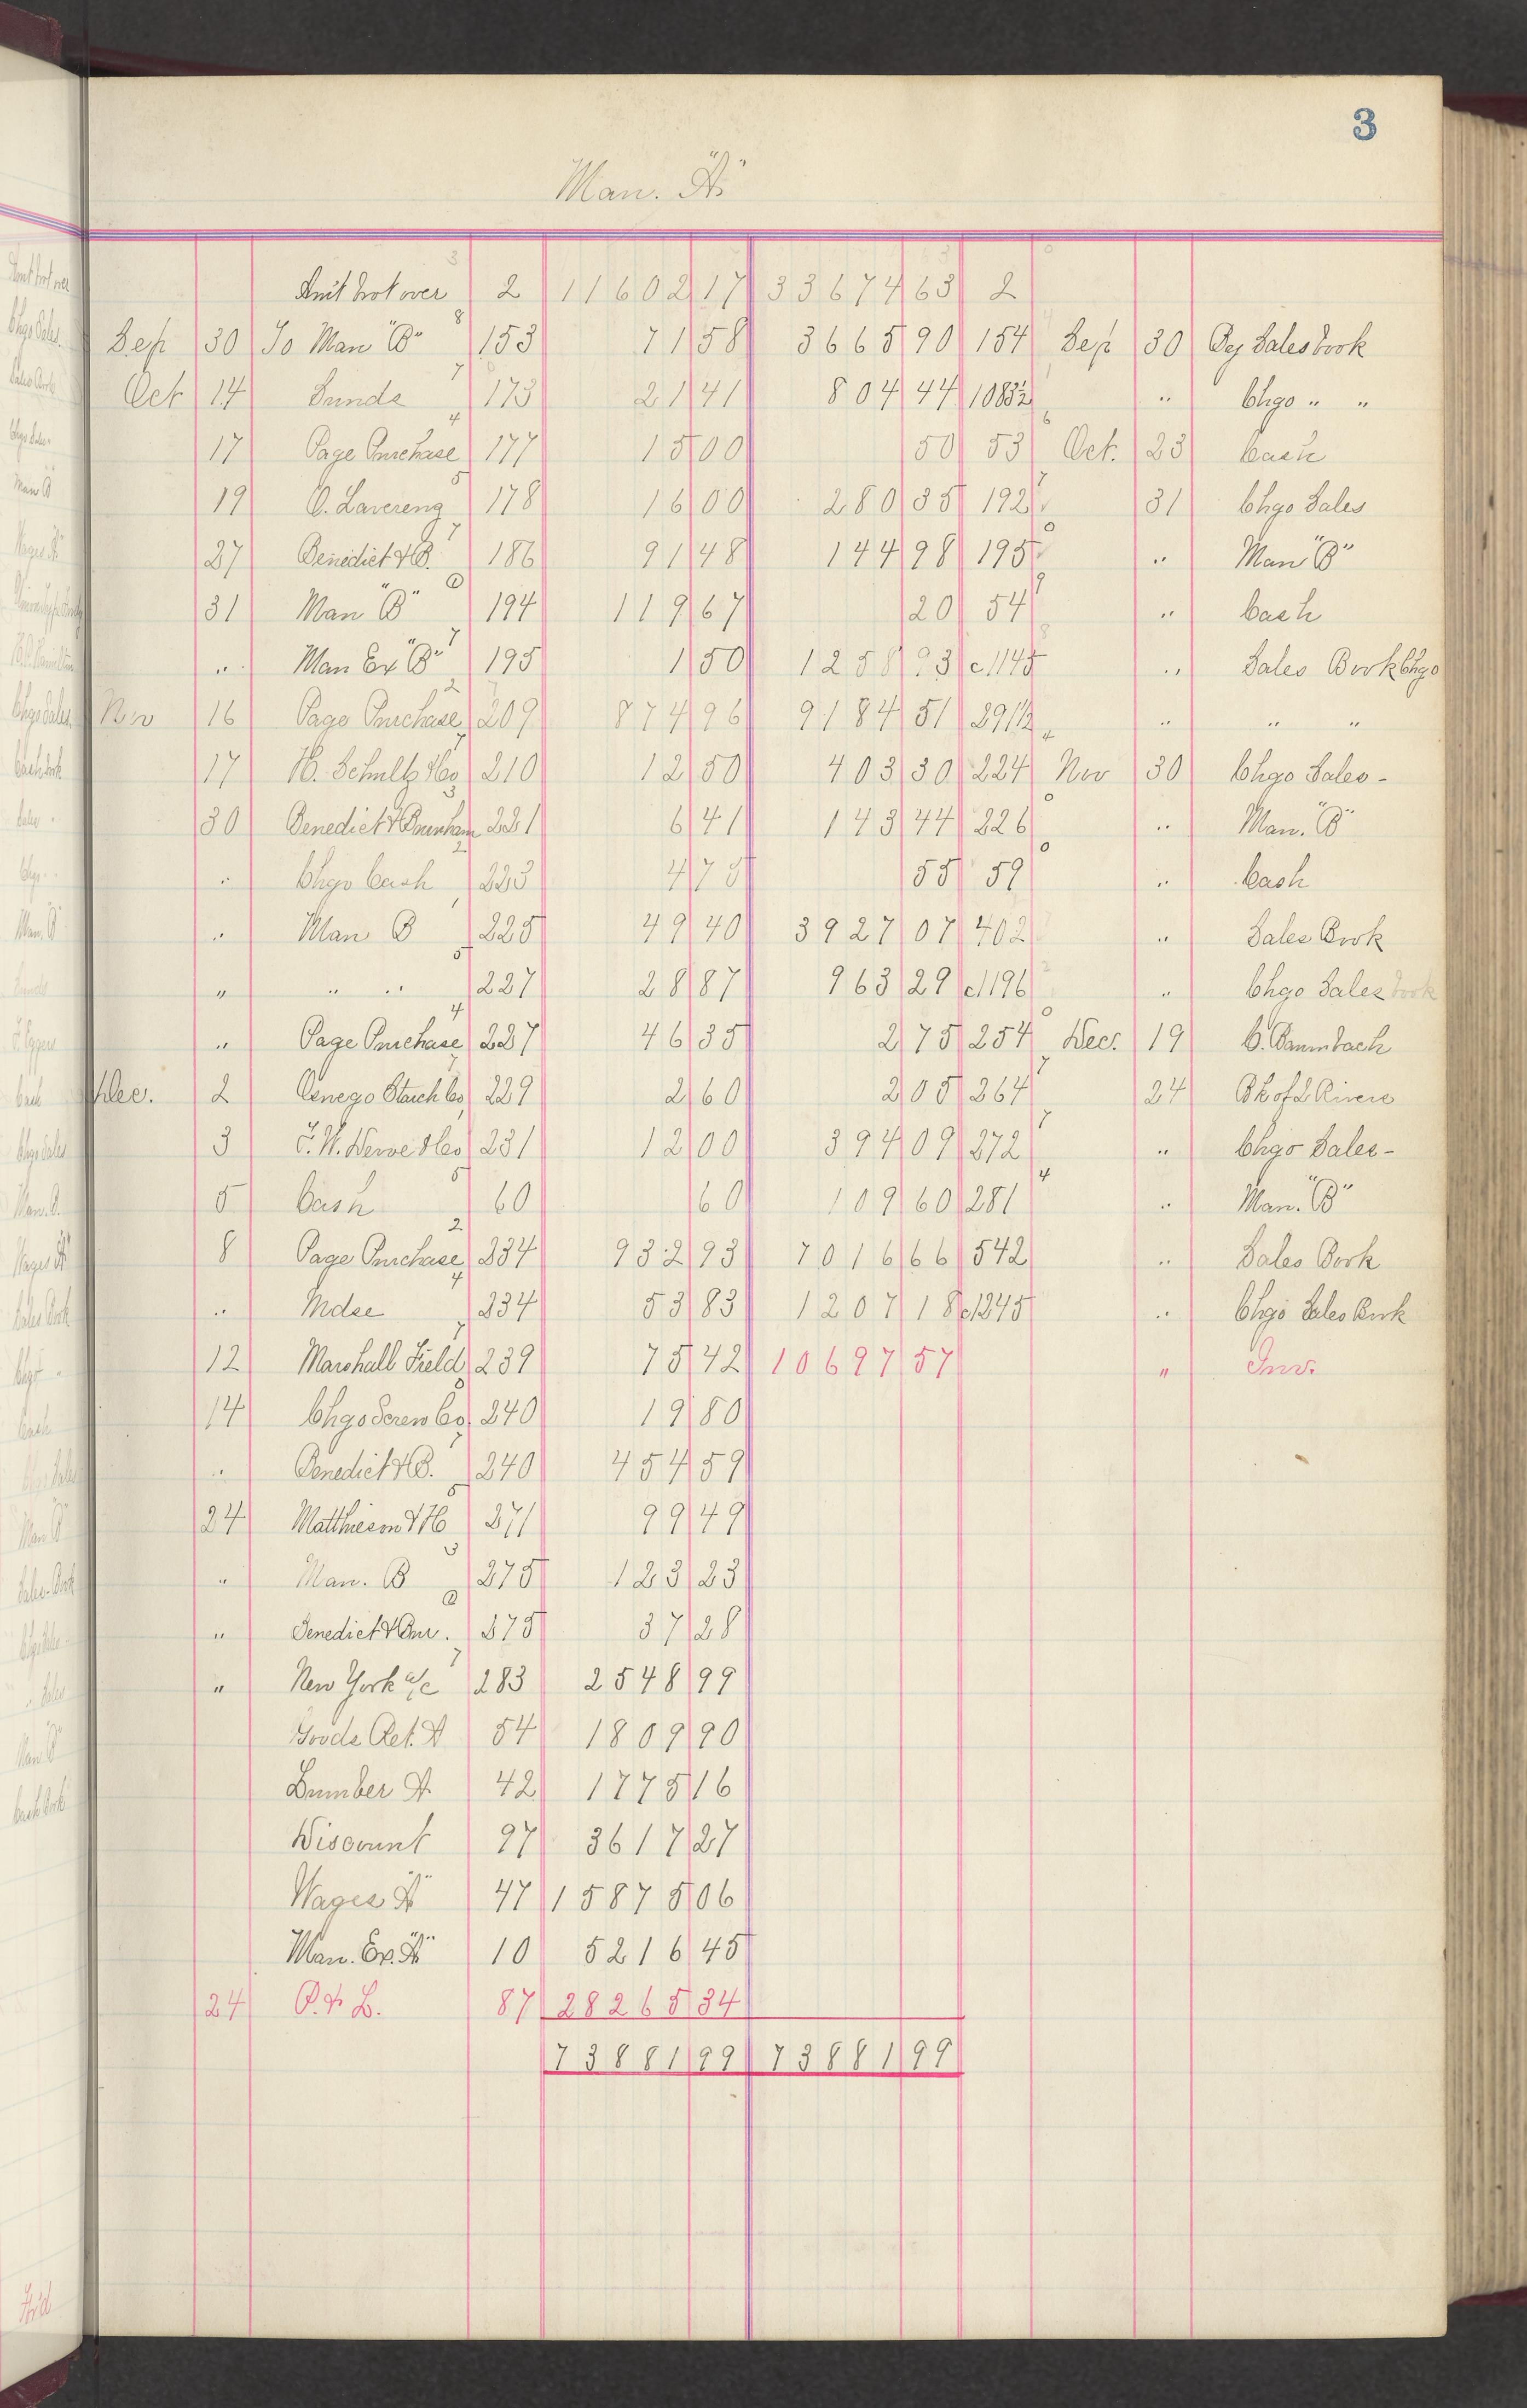 3
Man. "A"
Amt brot over 2 11602 17 33674 63 2
Sep 30 To Man "B" 153 71 58 3665 90 154 Sep 30 By Sales book
Oct 14 Sunds 173 21 41 804 44 1083½ " Chgo " "
17 Page Purchase 177 15 00 50 53 Oct. 23 Cash
19 178 16 00 280 35 192 31 Chgo Sales
27 Benedict & B. 186 91 48 144 98 195 " Man "B"
31 Man "B" 194 119 67 20 54 " Cash
" Man Ex "B" 195 1 50 1258 93 c1145 " Sales Book Chgo
Nov 16 Page Purchase 209 874 96 9184 51 " " "
17 H. Schultz & Co 210 12 50 403 30 224 Nov 30 Chgo Sales -
30 Benedict & Burnham 221 6 41 143 44 226 " Man. "B"
" Chgo Cash 223 4 75 55 59 " Cash
" Man B 225 49 40 3927 07 402 " Sales Book
" " " 227 28 87 963 29 c1196 " Chgo Sales book
" Page Purchase 227 46 35 2 75 254 Dec. 19 C. Baumbach
Dec. 2 Oswego Starch Co 229 2 60 2 05 264 24 Bk of 2 Rivers
3 231 12 00 394 09 272 " Chgo Sales -
5 Cash 60 60 109 60 281 " Man. "B"
8 Page Purchase 234 932 93 7016 66 542 " Sales Book
" Mdse 234 53 83 1207 18 c1245 " Chgo Sales Book
12 Marshall Field 239 75 42 10697 57 " Inv.
14 Chgo Screw Co 240 19 80
" Benedict & B. 240 454 59
24 Matthieson & H 271 99 49
" Man. B 275 123 23
" Benedict & Bur. 275 37 28
" New York a/c 283 2548 99
Goods Ret. A 54 1809 90
Lumber A. 42 1775 16
Discount 97 3617 27
Wages "A" 47 15875 06
Man. Ex. "A" 10 5216 45
24 P. & L. 87 28265 34
73881 99 73881 99